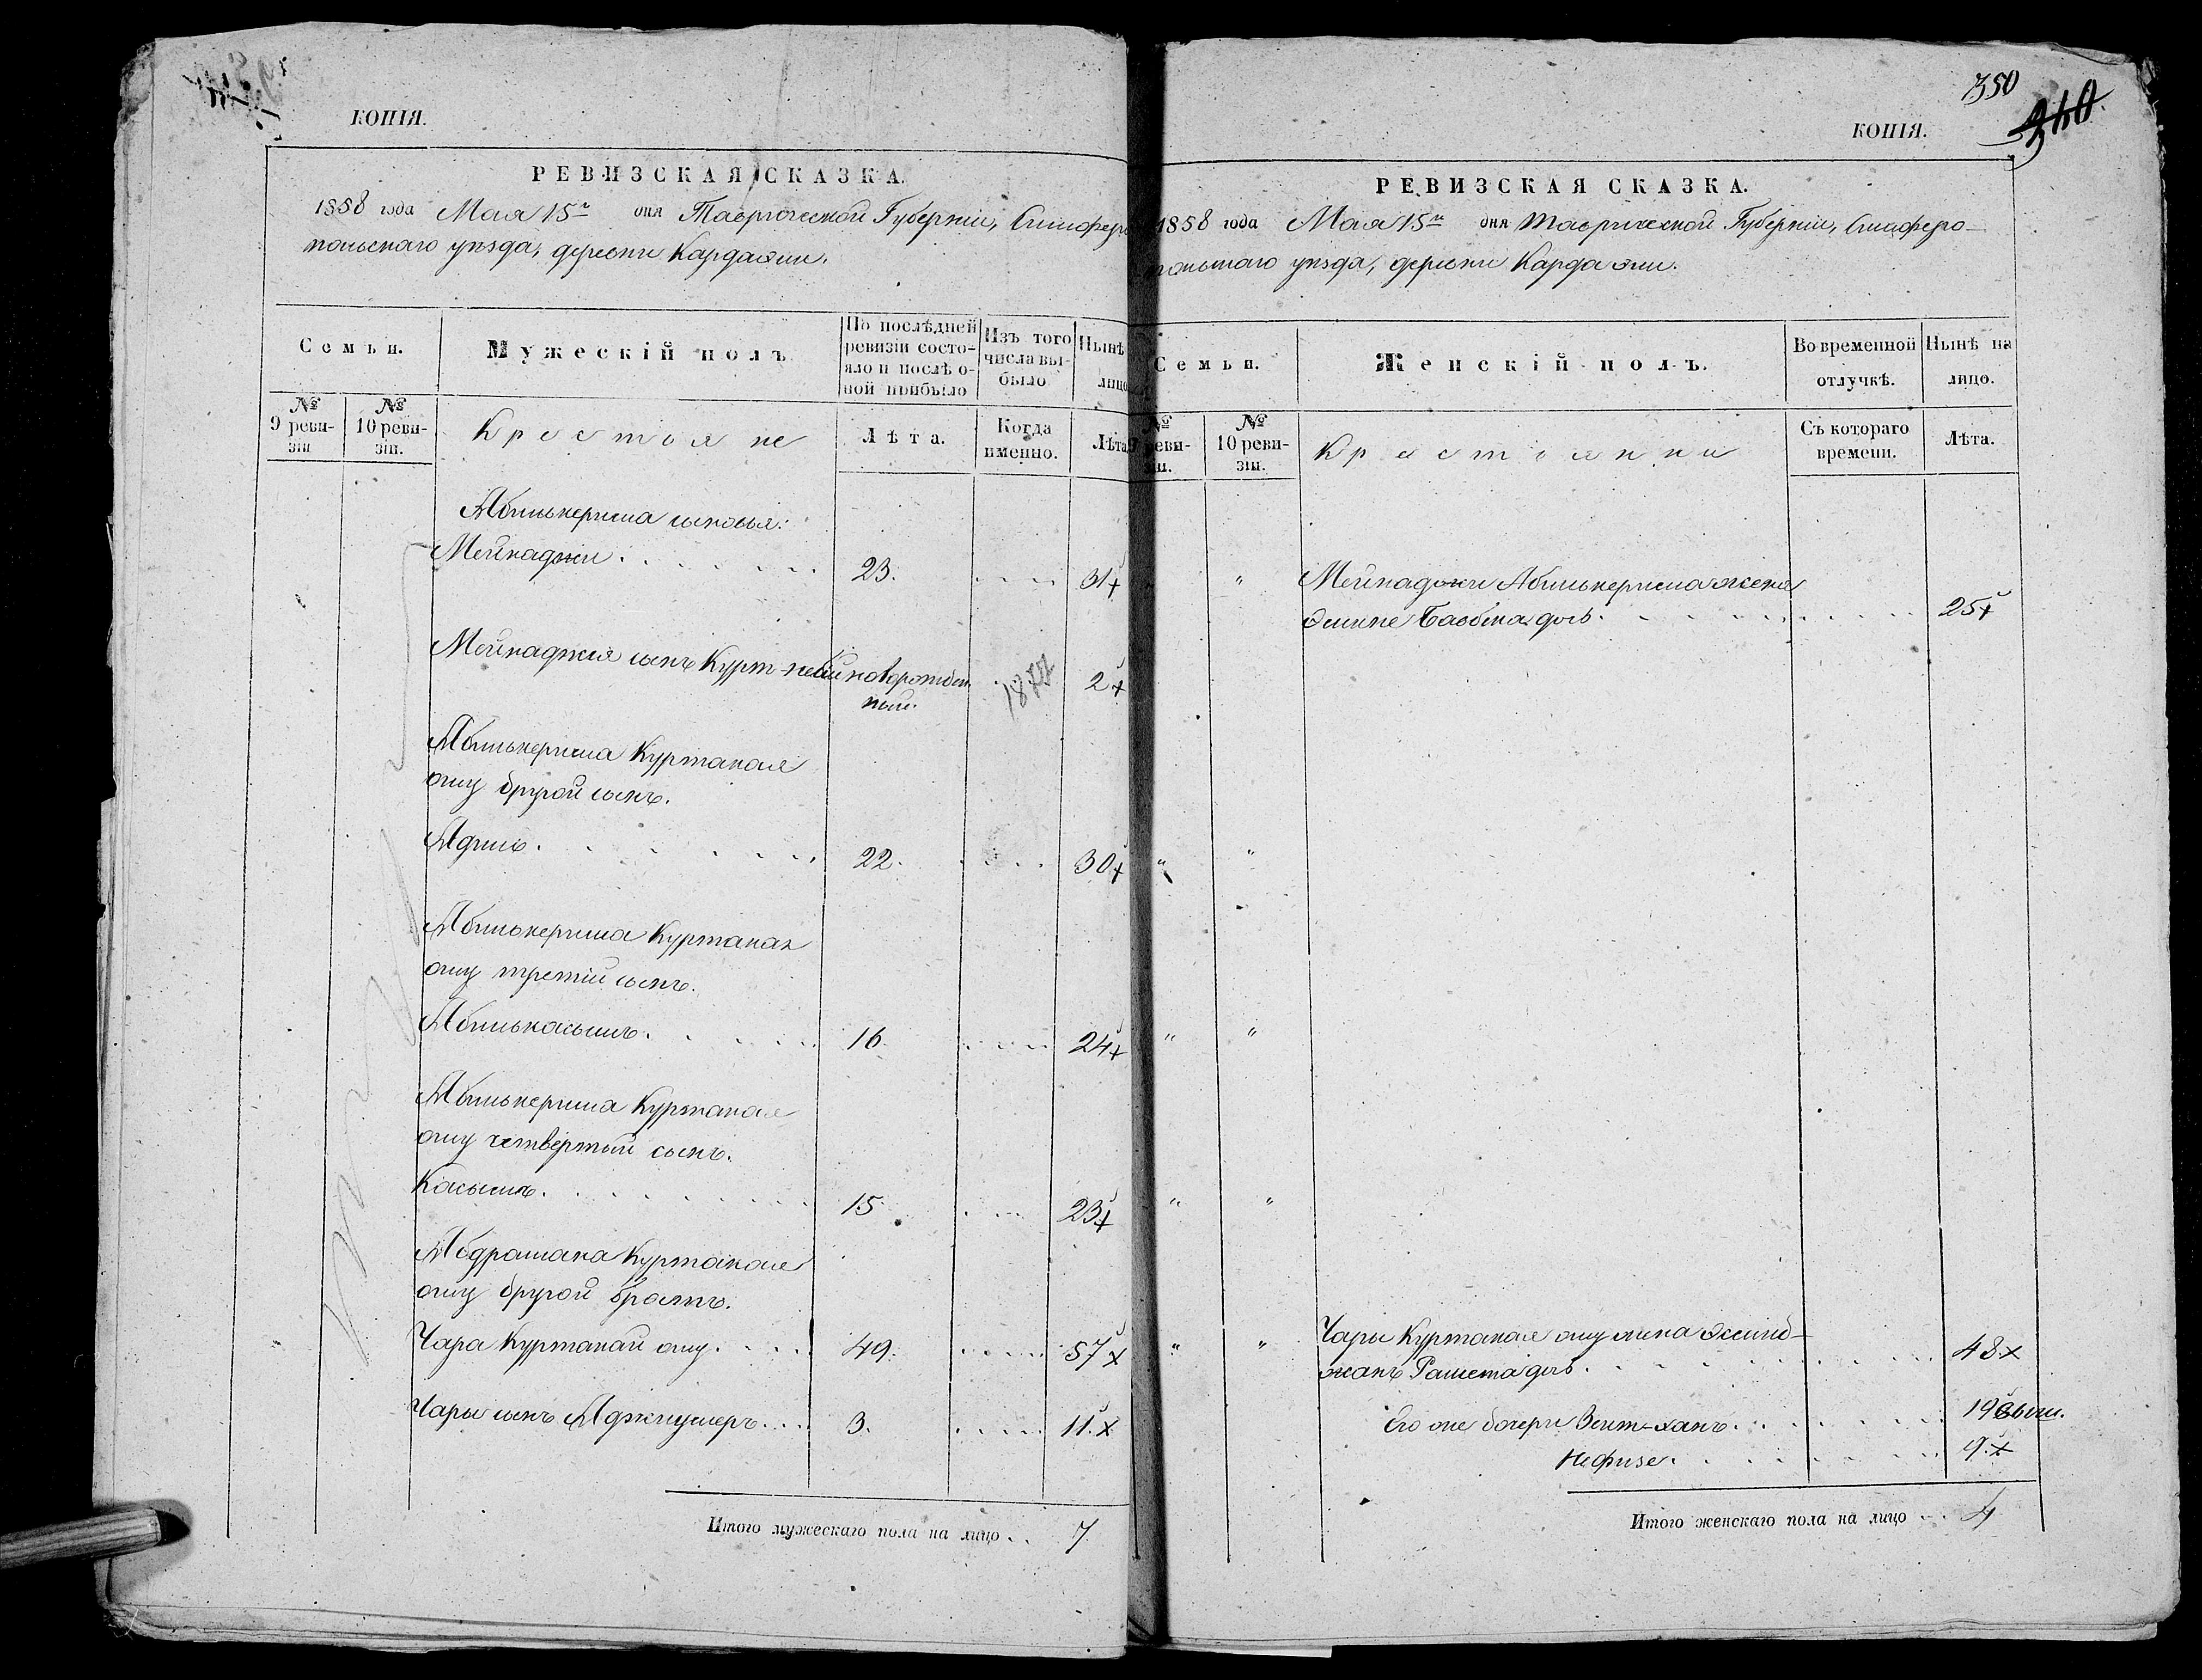 КОПІЯ.
РЕВИЗСКАЯ СКАЗКА.
1858 года Мая 15 дня Таврической Губерніи, Симферо
польскаго уѣзда, деревни
Семьи.
Мужескій полъ
По послѣдней ревизіи состояло и послѣ оной прибыло
Изъ того числа выбыло
Нынѣ лицо
№ 9 ревизіи
№ 10 ревизіи.
Крестьяне
Лѣта.
Когда именно.
Лѣта
Абилькерима сыновья:
Мейнаджи 23. 31
Мейнаджія сынъ Курт-неби новорожден
ный. 2
Абилькерима Куртакая
оглу другой сынъ.
Адиль 22. 30
Абилькерима Куртакая
оглу третій сынъ.
Абилькасимъ 16. 24
Абилькерима Куртакая
оглу четвертый сынъ.
Касимъ 15 23
Абдрамана Куртакая
оглу другой братъ.
Чара Куртакай оглу 49. 57
Чары сынъ Аджиумеръ 3. 11.
Итого мужескаго пола на лицо 7
350
КОПІЯ.
РЕВИЗСКАЯ СКАЗКА.
1858 года Мая 15 дня Таврической Губерніи, Симферо-
польскаго уѣзда, деревни
Семьи.
Женскій полъ.
Во временной отлучкѣ.
Нынѣ на лицо.
№ реви-
зіи.
№ 10 ревизіи.
Крестьянки
Съ котораго времени.
Лѣта.
Мейнаджи Абилькерима жена
Эмине дочь 25
Чары Куртакая оглу жена
жанъ дочь 48
Его же дочери 19
Нефизе 9
Итого женскаго пола на лицо 4